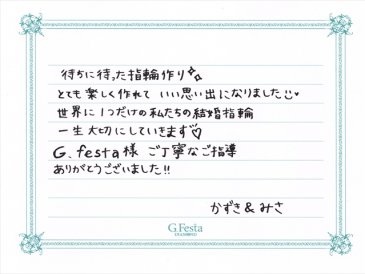 待ちに待った指輪作り✨
とても楽しく作れて いい思い出になりました☺♥
世界に1つだけの私たちの結婚指輪
一生大切にしていきます♡
G.festa様 ご丁寧なご指導
ありがとうございました!!
かずき&みさ
G.Festa